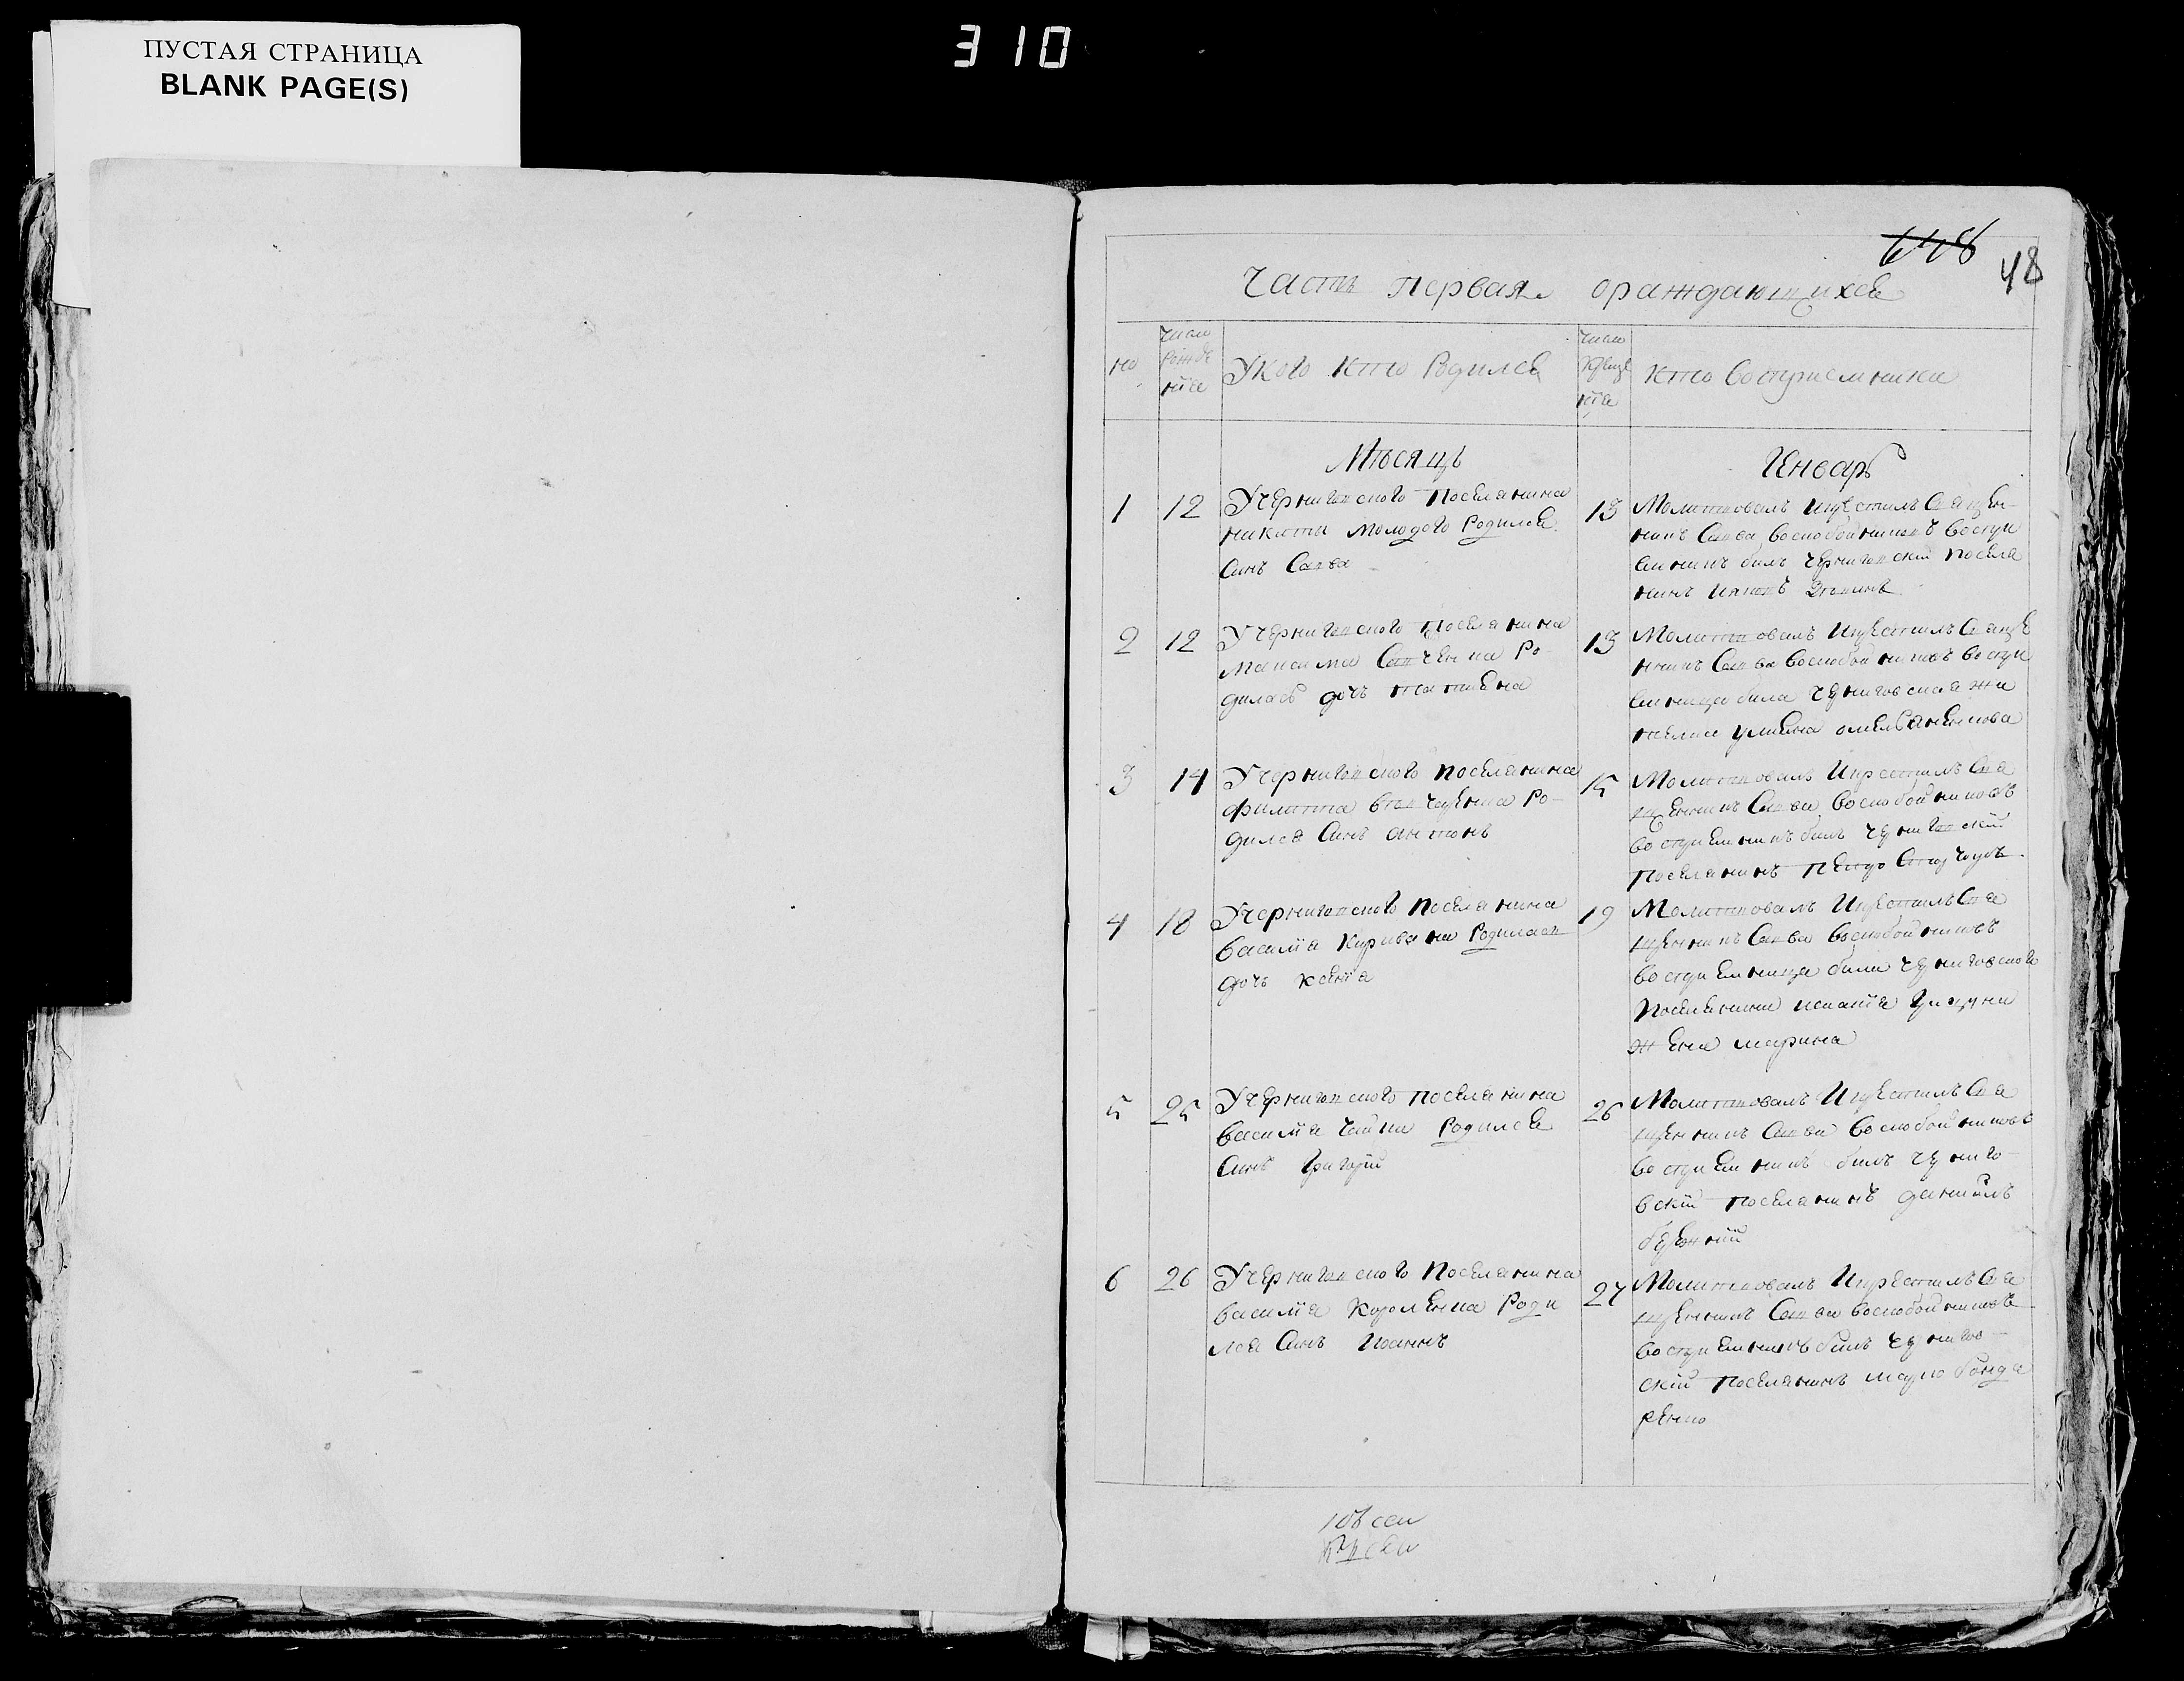 ПУСТАЯ СТРАНИЦА
BLANK PAGE(S)
310
648
48
Часть первая ораждающихся
но
число рожде нїа
У кого кто родился
число креще нїа
кто восприемники
Мѣсяцъ
Генварь
1 12
Учернигонского поселянина
никиты молодого родился
Синъ Савва
13
Молитвовалъ икрестилъ Священ-
никъ Савва воскобойниковъ воспри
емникъ билъ Чернигонский поселя
нинъ
2 12
Учернигонского поселянина
максима Савченка Ро
дилась дочь татияна
13
Молитвовалъ икрестилъ Священ
никъ Савва воскобойниковъ воспри
емница била черниговская жи
улияна омельяненкова
3 14
Учернигонского поселянина
филиппа Ро-
дился Синъ антонъ
15
Молитвовалъ Икрестилъ Свя
щенникъ Савва воскобойниковъ
восприемникъ билъ чернигонский
поселянинъ
4 18
Учернигонского поселянина
василїа Родилася
дочь ксенїа
19
Молитвовалъ Икрестилъ Свя
щенникъ Савва воскобойниковъ
восприемница била черниговского
поселянина
жена марина
5 25
Учернигонского поселянина
василїа чайки Родился
Синъ Григорїй
26
Молитвовалъ Икрестилъ Свя
щенникъ Савва воскобойниковъ
восприемникъ билъ черниго-
вский поселянинъ данїилъ
6 26
Учернигонского поселянина
василїа Короленка Роди
лся Синъ Иоаннъ
27
Молитвовалъ Икрестилъ Свя
щенникъ Савва воскобойниковъ
восприемникъ билъ чернигов-
ский поселянинъ марко бонда
ренко